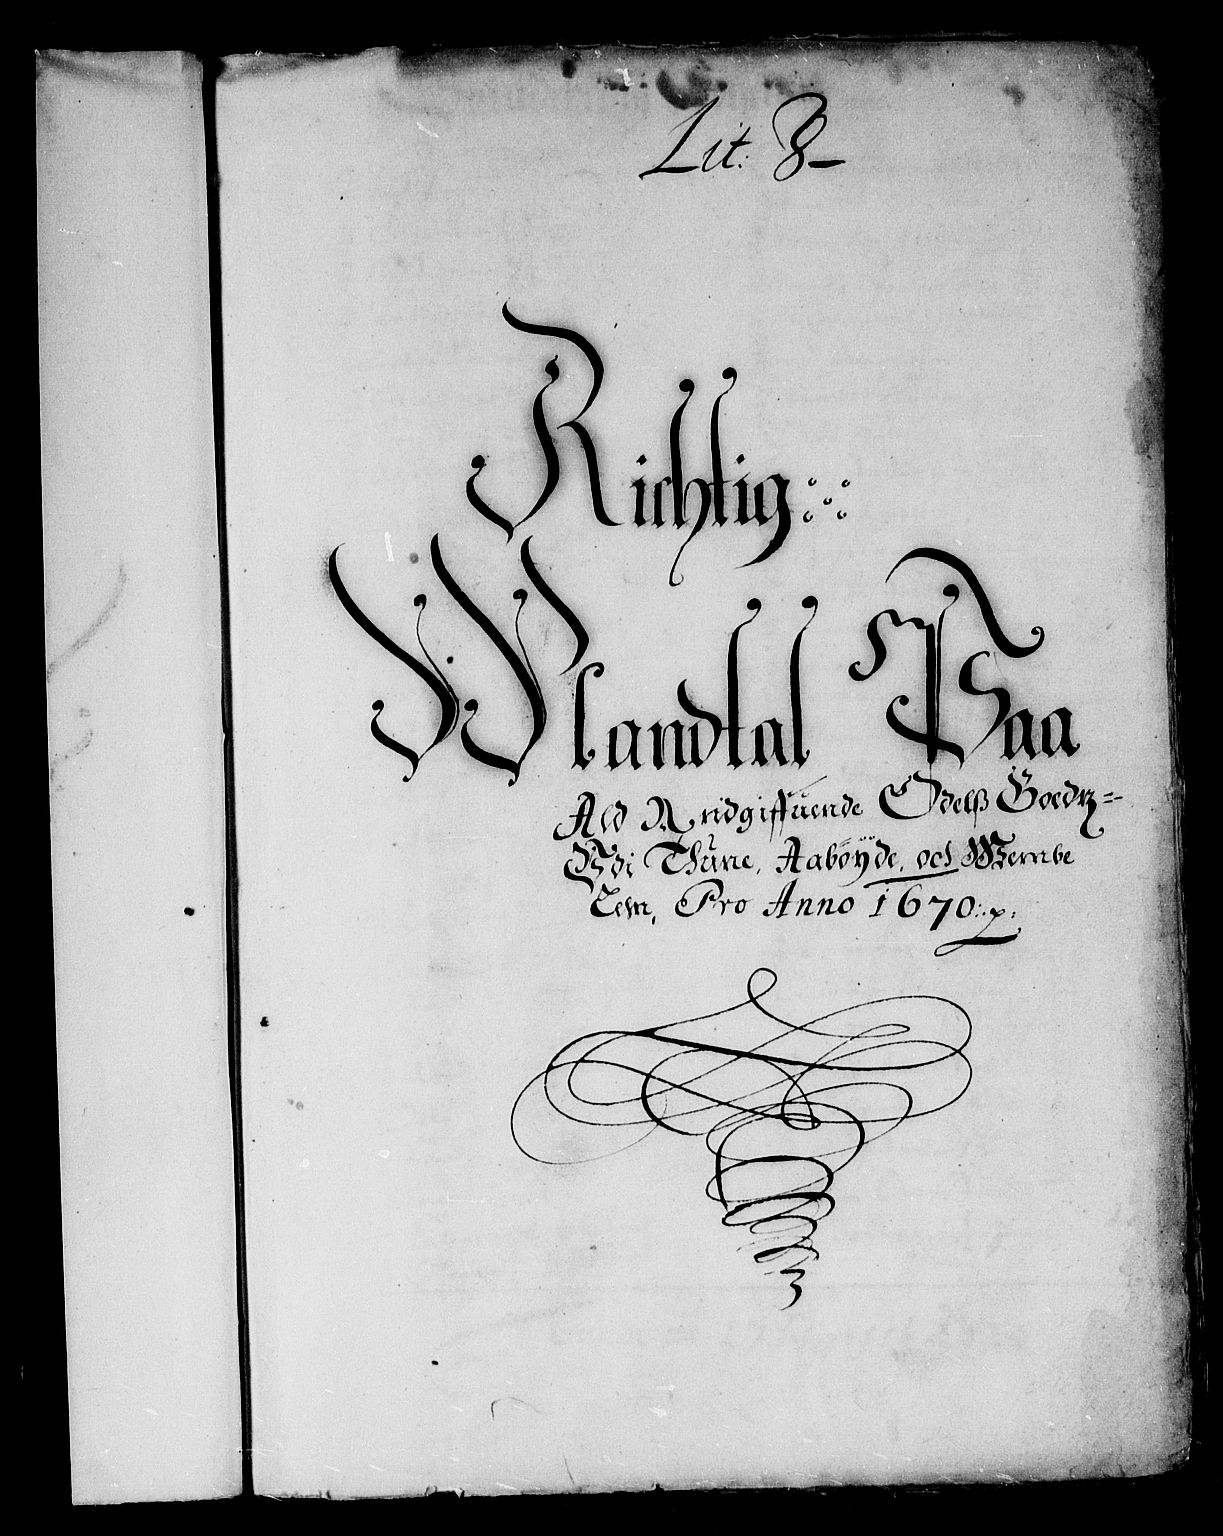 Lit: B
Richtig
Mandtal Paa
Ald Ridgiffuende Odelß Goedtz
Udi Thüne, Aabøyde, och Wembe
Len, Pro Anno 1670